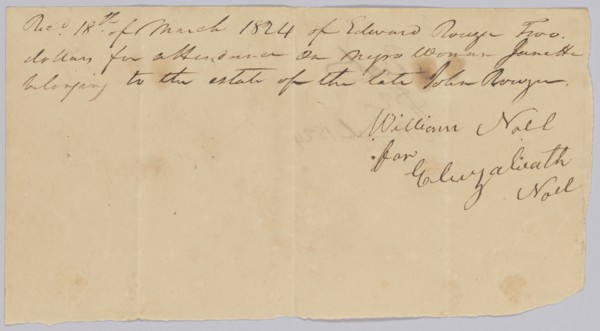 Rec.d 18th of March 1824 of Edward Rouzee Two
dollars for attendance on negro woman Janette
belonging to the estate of the late John Rouzee.
William Noel
for
Eluzabeath
Noel